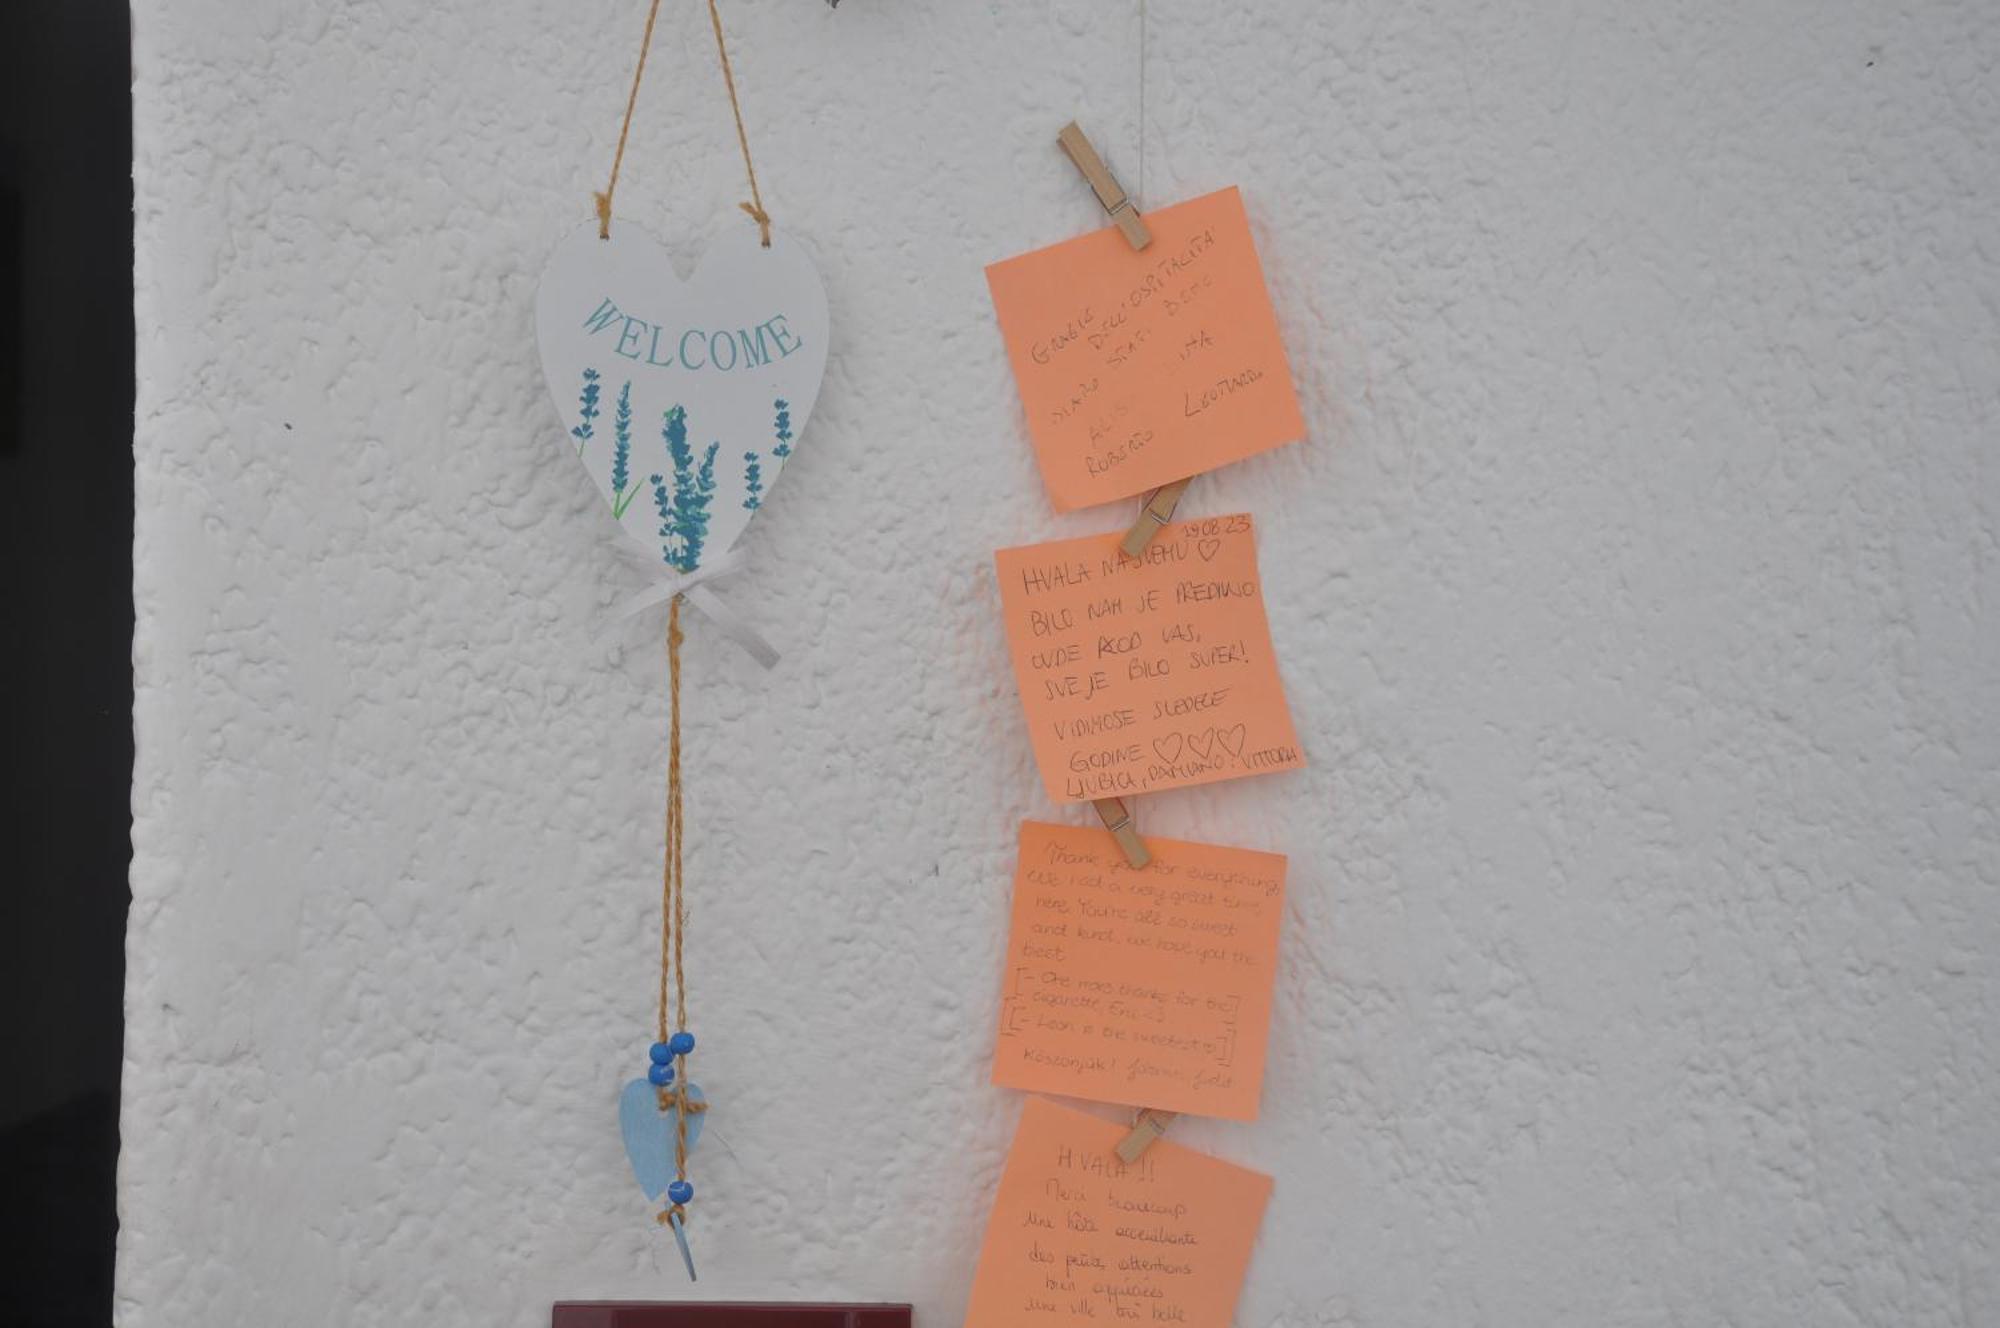 WELCOME
GRAZIE
DELL'OSPITALITÀ
SIAMO STATI BENE
ROBERTO LEONARDO
19.08.23
HVALA NA SVEMU ♡
BILO NAM JE PREDIVNO
OVDE KOD VAS,
SVE JE BILO SUPER!
VIDIMO SE SLEDEĆE
GODINE ♡♡♡
LJUBICA, DAMIANO I VITTORIA
Thank you for everything,
We had a very great time
here. You're all so sweet
and kind, we hope you the
best
[- One more thanks for the]
cigarette, Eric <3
[- Leon is the sweetest]
Köszönjük! Judit
HVALA!!
Merci beaucoup
Une hôte accueillante
des petites attentions
bien appréciées
une ville très belle